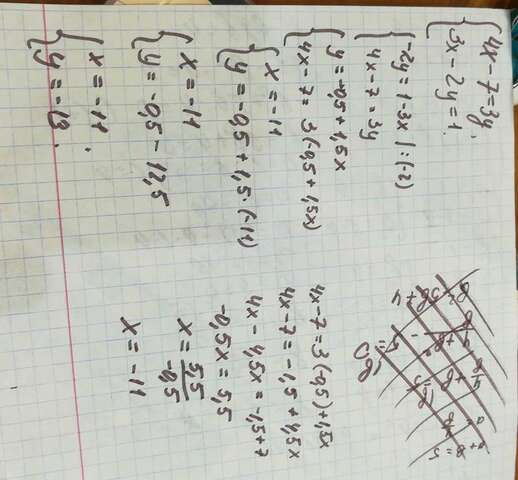 4x - 7 = 3y,
3x - 2y = 1.
-2y = 1 - 3x |:(-2)
4x - 7 = 3y
y = -0,5 + 1,5x
4x - 7 = 3(-0,5 + 1,5x)
x = -11
y = -0,5 + 1,5 · (-11)
x = -11
y = -0,5 - 12,5
x = -11.
y = -13.
4x - 7 = 3(-0,5) + 1,5x
4x - 7 = -1,5 + 4,5x
4x - 4,5x = -1,5 + 7
-0,5x = 5,5
x = 5,5
-0,5
x = -11